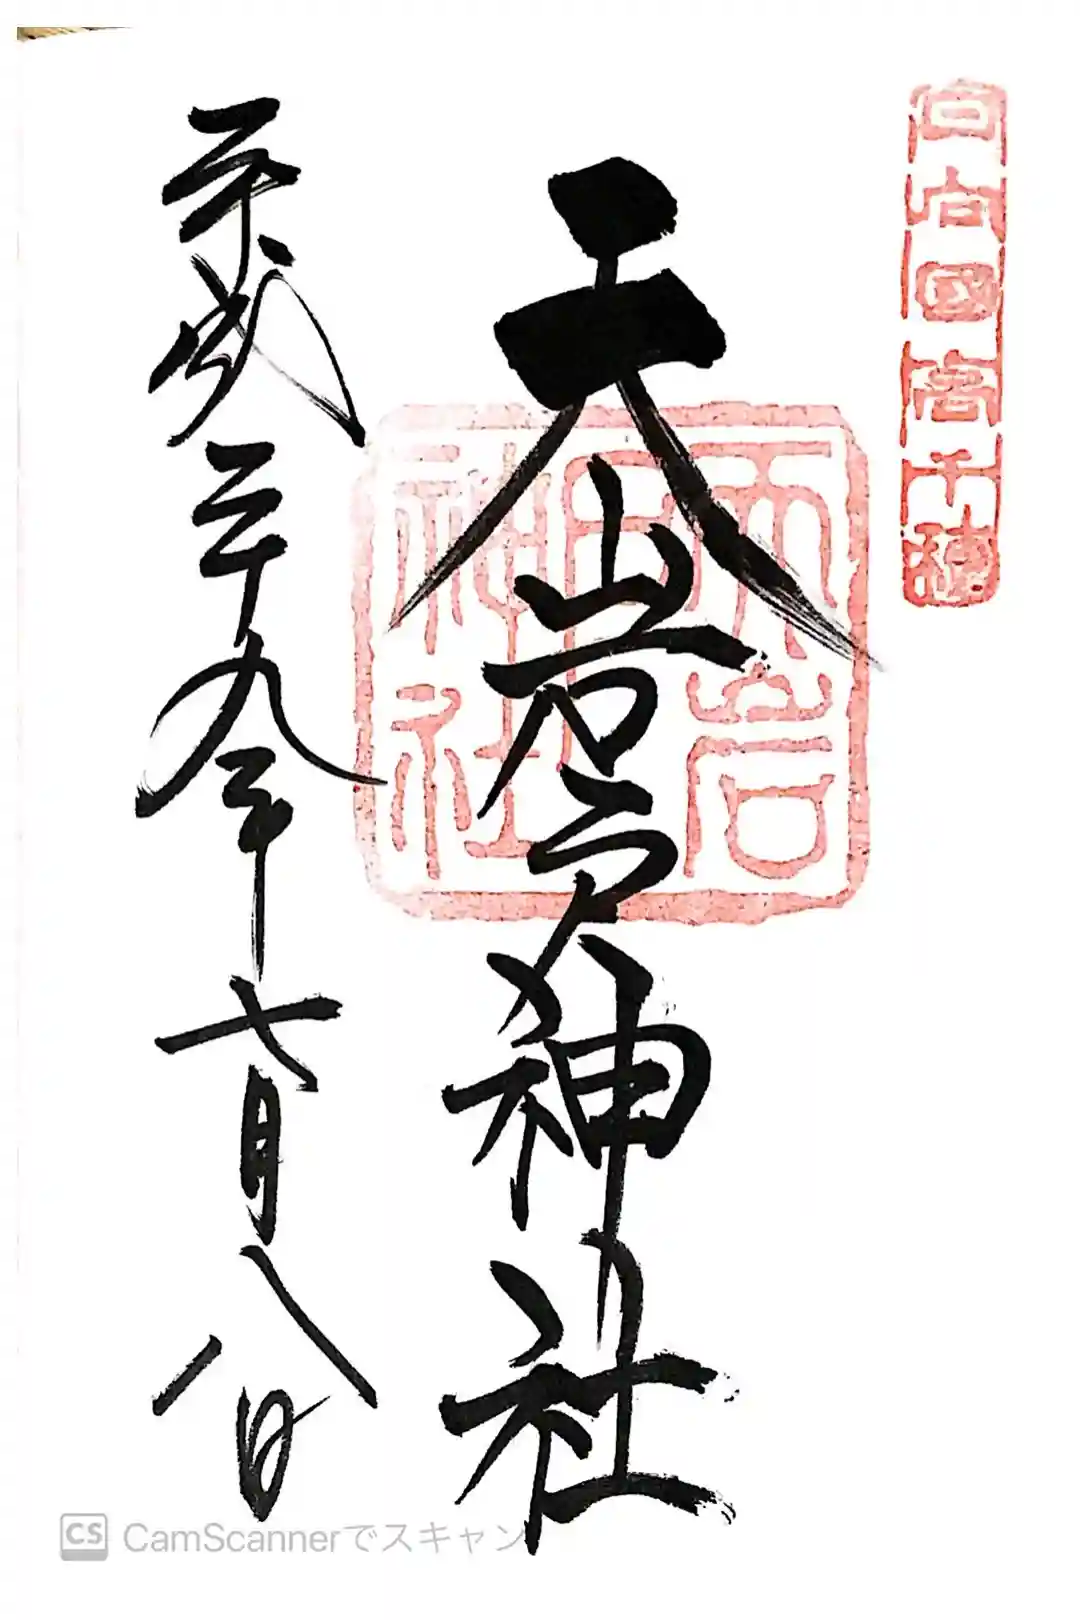 日向国高千穂
天岩戸神社
天岩戸神社
平成二十九年七月八日
CS CamScannerでスキャン